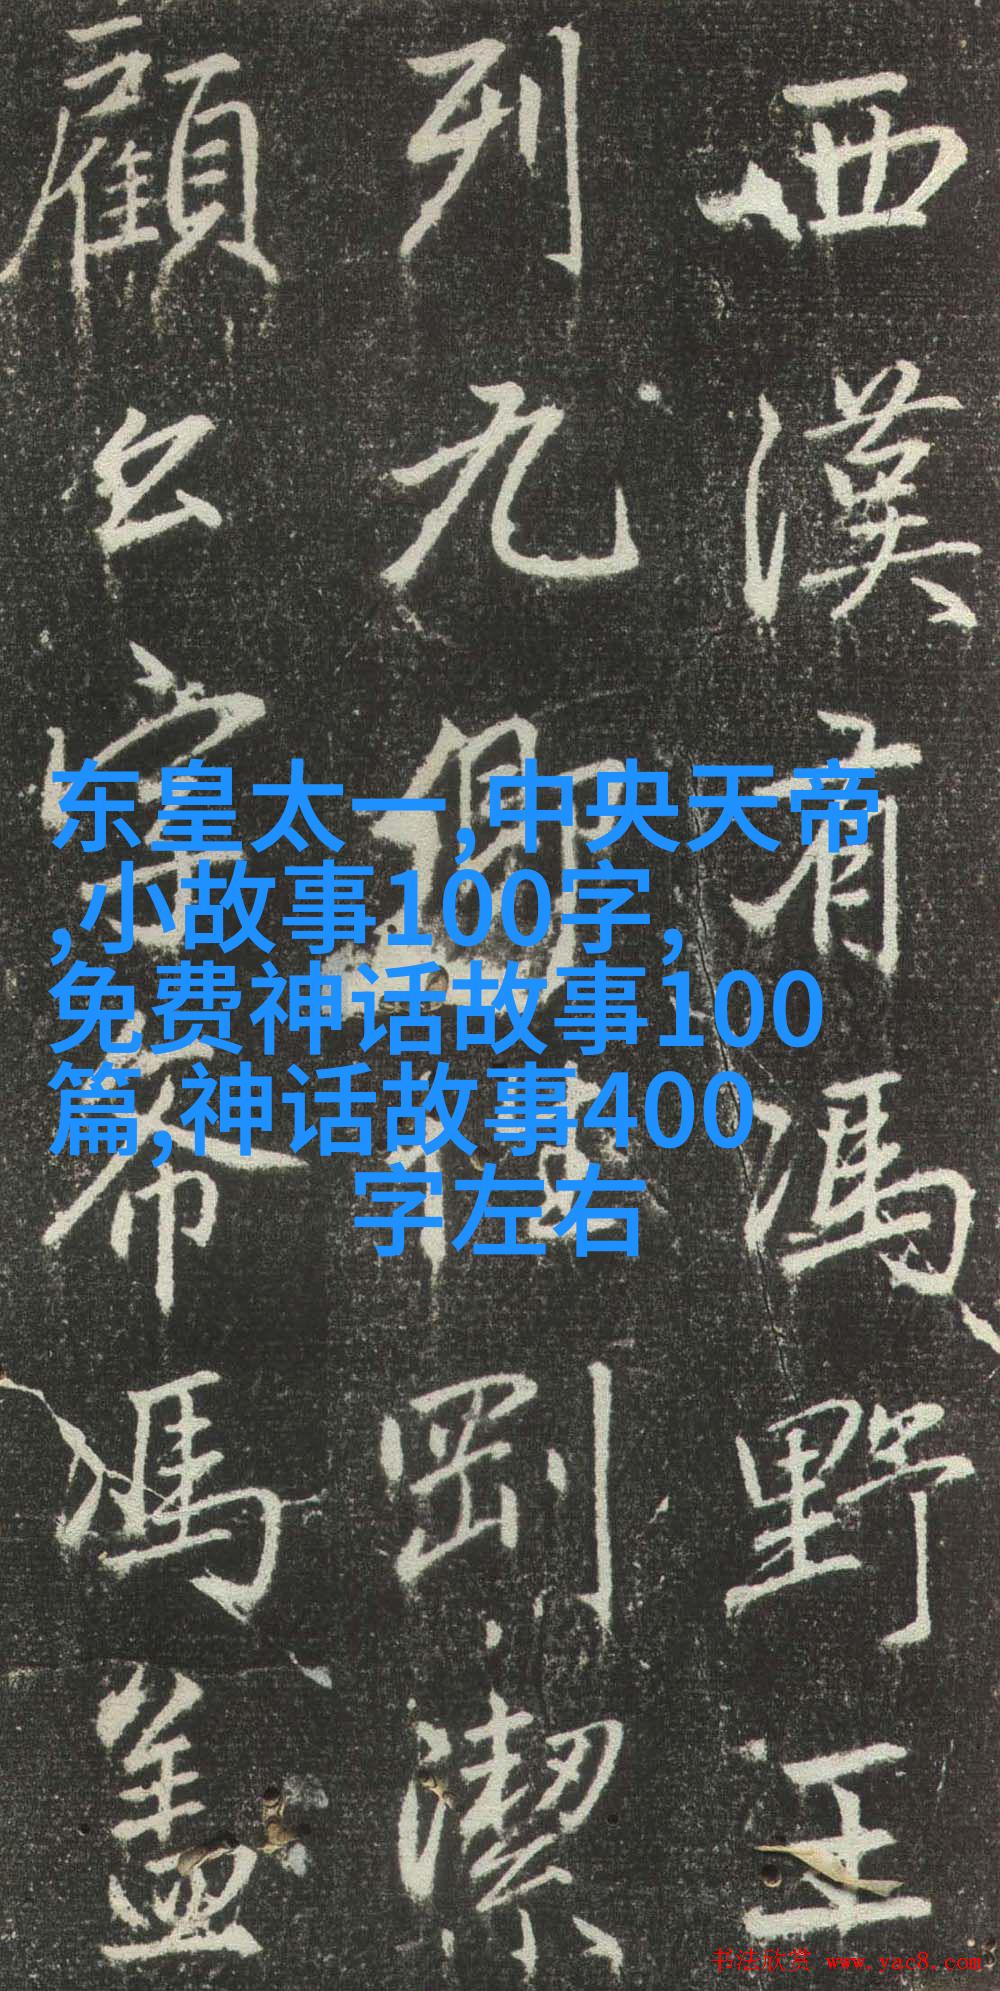 西漢有馮野王
列九卿剛潔
顧公字希馮蓋
东皇太一,中央天帝
,小故事100字,
免费神话故事100
篇,神话故事400
字左右
书法欣赏 www.yac8.com